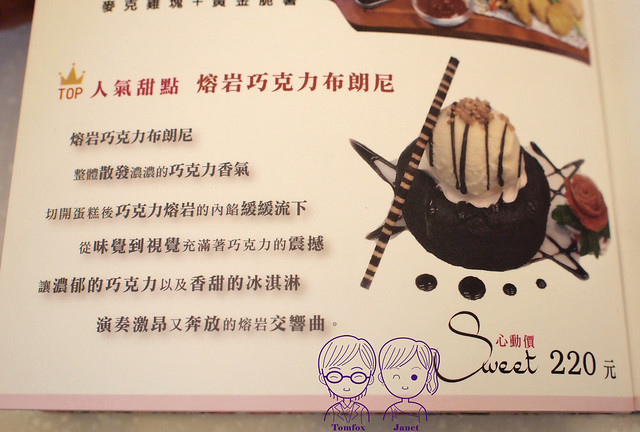 麥克雞塊+黃金脆薯
TOP 人氣甜點 熔岩巧克力布朗尼
熔岩巧克力布朗尼
整體散發濃濃的巧克力香氣
切開蛋糕後巧克力熔岩的內餡緩緩流下
從味覺到視覺充滿著巧克力的震撼
讓濃郁的巧克力以及香甜的冰淇淋
演奏激昂又奔放的熔岩交響曲。
心動價
Sweet 220元
Tomfox Janet